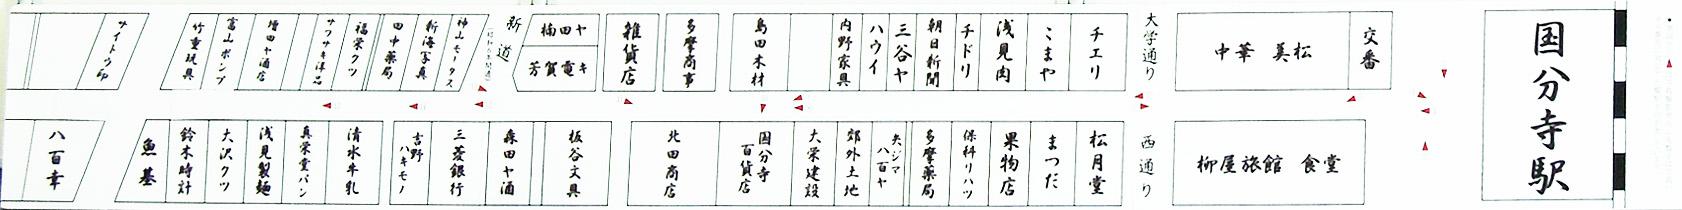 国分寺駅
交番
中華 美松
大学通り
チエリ
こまや
浅見肉
チドリ
朝日新聞
三谷ヤ
ハウイ
内野家具
島田木材
多摩商事
雑貨店
楠田ヤ
芳賀電キ
新道
神山モータス
新海写真
田中薬局
福栄クツ
サワサキ洋品
増田ヤ酒店
富山ポンプ
竹重玩具
サイトウ印
柳屋旅館 食堂
西通り
松月堂
まつだ
果物店
保科リハツ
多摩薬局
矢ジマ
八百ヤ
郊外土地
大栄建設
国分寺
百貨店
北田商店
板谷文具
森田ヤ酒
三菱銀行
吉野
ハキモノ
清水牛乳
真栄堂パン
浅見製麺
大沢クツ
鈴木時計
魚基
八百幸